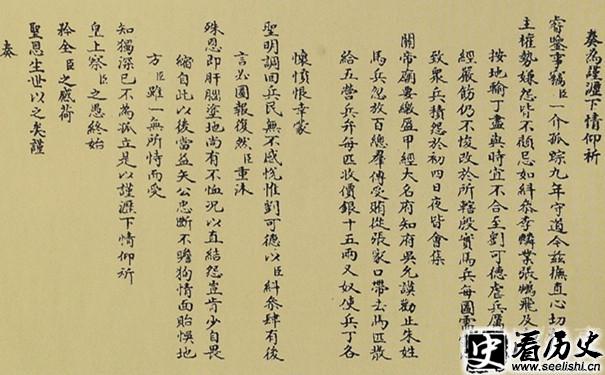 奏為謹瀝下情仰祈
睿鑒事竊臣一介孤踪九年守道今茲撫直心切
主權勢嫌怨皆不顧忌如糾參李麟業張鵬飛及
按地輸丁盡與時宜不合至劉可德虐兵厲
經嚴飭仍不悛改於所轄殷實馬兵每圖需
致衆兵積怨於初四日夜皆會集
關帝廟要繳盔甲經大名府知府吳允謨勸止朱姓
馬兵忿放百總羣傅受賄從張家口帶去馬匹散
給五營兵弁每匹收價銀十五兩又奴使兵丁各
懷憤恨幸蒙
聖明調回兵民無不感悅惟劉可德以臣糾參肆有後
言必圖報復然臣重沐
殊恩即肝腦塗地尚有不恤況以直結怨豈肯少自畏
縮自此以後當益矢公忠斷不瞻狥情面貽悞地
方臣雖一無所恃而受
知獨深已不為孤立是以謹瀝下情仰祈
皇上察臣之愚終始
矜全臣之感荷
聖恩生世以之矣謹
奏
史
看历史
www.seelishi.cn